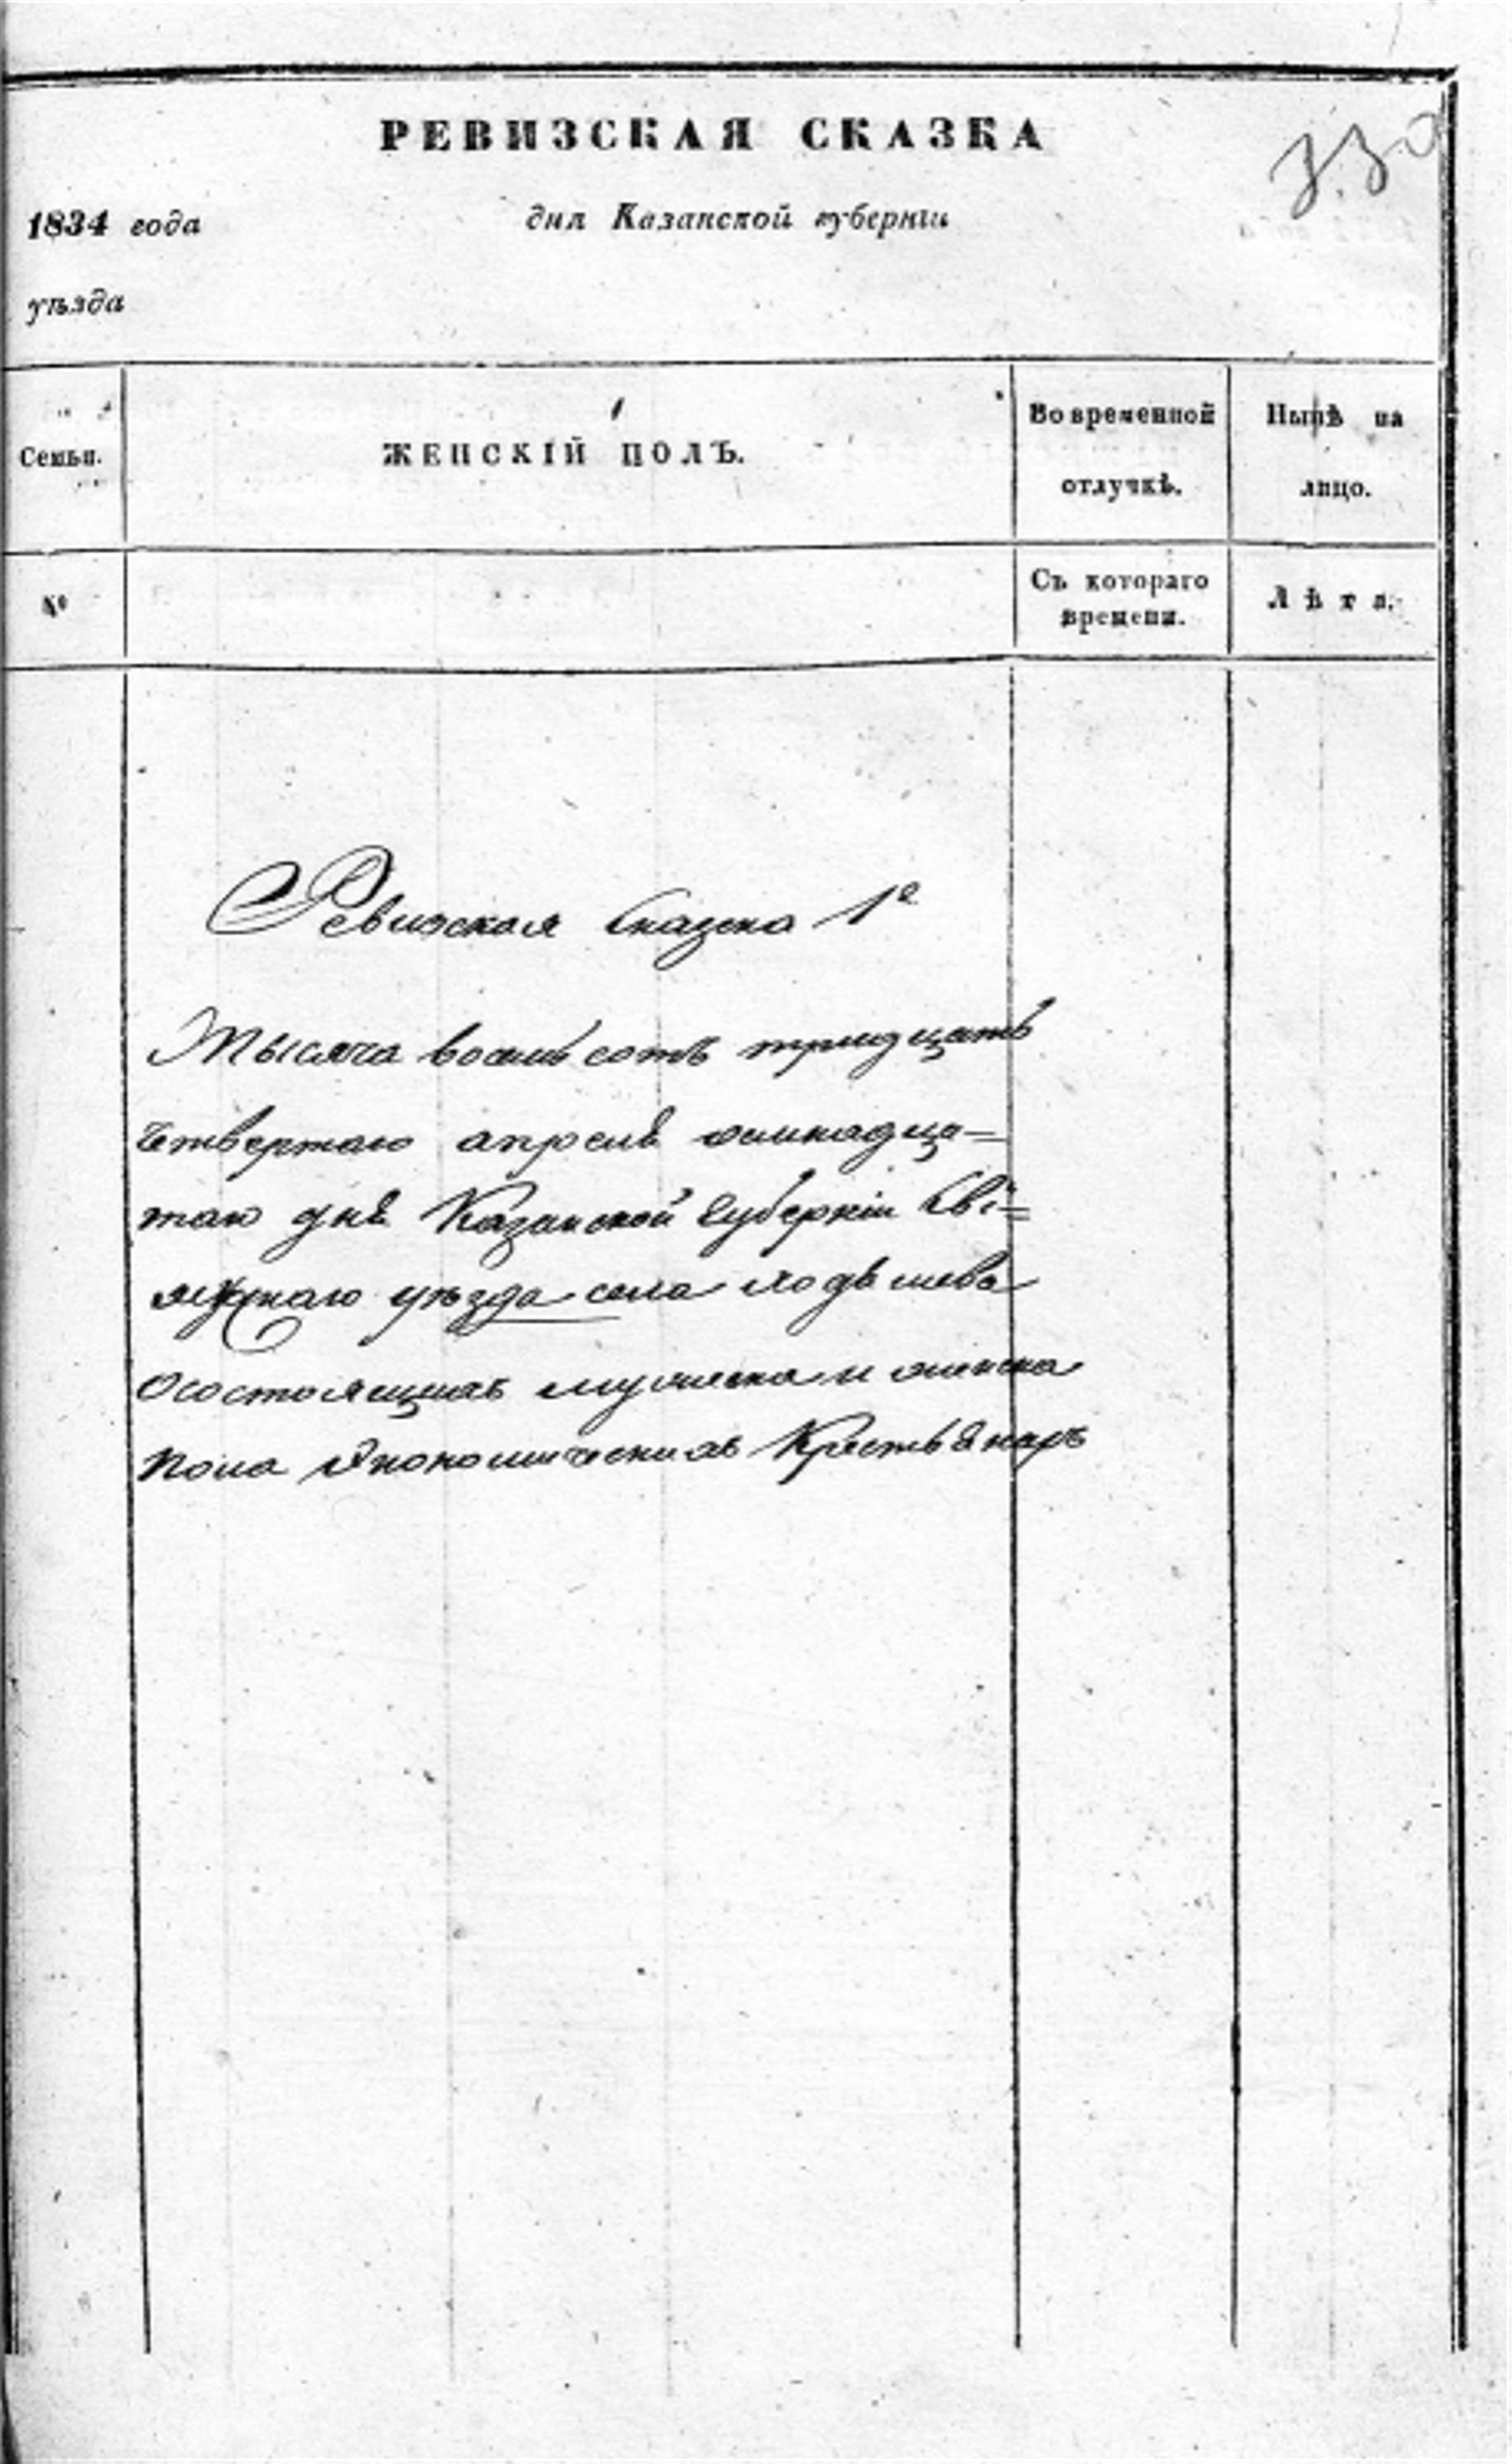 РЕВИЗСКАЯ СКАЗКА
330
1834 года дня Казанской губерніи
уѣзда
Семьи. ЖЕНСКІЙ ПОЛЪ. Во временной отлучкѣ. Нынѣ на лицо.
№ Съ котораго времени. Лѣта.
Ревизская Сказка 1ª
Тысяча восемь сотъ тридцать
четвертаго апреля осмнадца=
таго дня Казанской Губерніи Сві=
яжскаго уѣзда села
О состоящихъ мужеска и женска
пола Экономическихъ Крестьянахъ